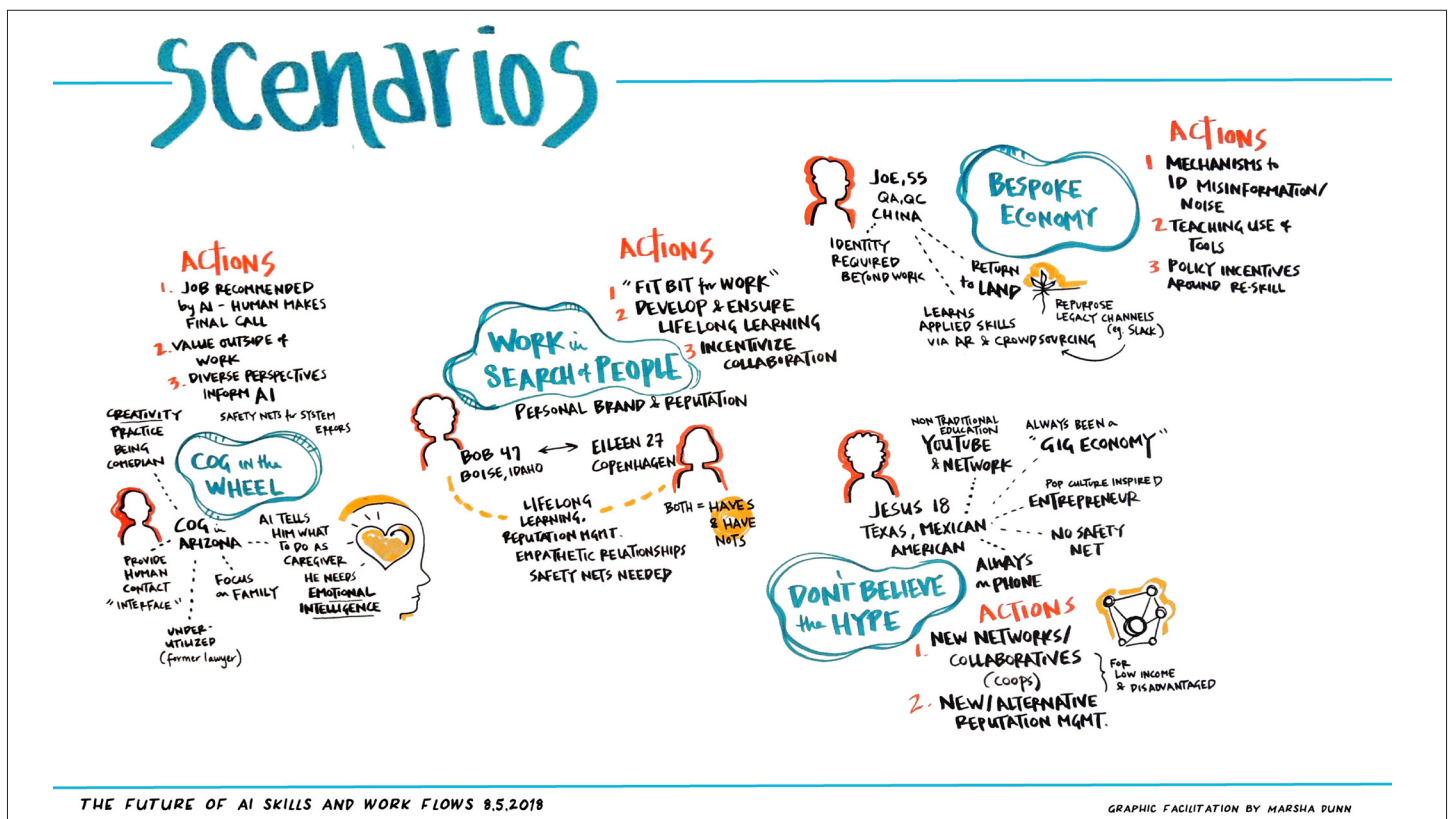 Scenarios
ACTIONS
1. JOB RECOMMENDED
by AI - HUMAN MAKES
FINAL CALL
2. VALUE OUTSIDE of
WORK
3. DIVERSE PERSPECTIVES
INFORM AI
CREATIVITY
PRACTICE
BEING
COMEDIAN
SAFETY NETS for SYSTEM
ERRORS
COG IN the
WHEEL
COG in
ARIZONA
AI TELLS
HIM WHAT
TO DO AS
CAREGIVER
HE NEEDS
EMOTIONAL
INTELLIGENCE
PROVIDE
HUMAN
CONTACT
"INTERFACE"
FOCUS
on FAMILY
UNDER-
UTILIZED
(former lawyer)
ACTIONS
1 "FIT BIT for WORK"
2 DEVELOP & ENSURE
LIFELONG LEARNING
3 INCENTIVIZE
COLLABORATION
WORK in
SEARCH of PEOPLE
PERSONAL BRAND & REPUTATION
BOB 47
BOISE, IDAHO
EILEEN 27
COPENHAGEN
LIFELONG
LEARNING,
REPUTATION MGMT.
EMPATHETIC RELATIONSHIPS
SAFETY NETS NEEDED
BOTH = HAVES
& HAVE
NOTS
JOE, 55
QA, QC
CHINA
IDENTITY
REQUIRED
BEYOND WORK
RETURN
to LAND
LEARNS
APPLIED SKILLS
VIA AR & CROWDSOURCING
REPURPOSE
LEGACY CHANNELS
(eg. SLACK)
BESPOKE
ECONOMY
ACTIONS
1 MECHANISMS to
ID MISINFORMATION/
NOISE
2 TEACHING USE of
TOOLS
3 POLICY INCENTIVES
AROUND RE-SKILL
NON TRADITIONAL
EDUCATION
YOUTUBE
& NETWORK
ALWAYS BEEN a
"GIG ECONOMY"
POP CULTURE INSPIRED
ENTREPRENEUR
NO SAFETY
NET
JESUS 18
TEXAS, MEXICAN
AMERICAN
ALWAYS
on PHONE
DON'T BELIEVE
the HYPE
ACTIONS
1. NEW NETWORKS/
COLLABORATIVES
(COOPS)
FOR
LOW INCOME
& DISADVANTAGED
2. NEW/ALTERNATIVE
REPUTATION MGMT.
THE FUTURE OF AI SKILLS AND WORK FLOWS 8.5.2018
GRAPHIC FACILITATION BY MARSHA DUNN